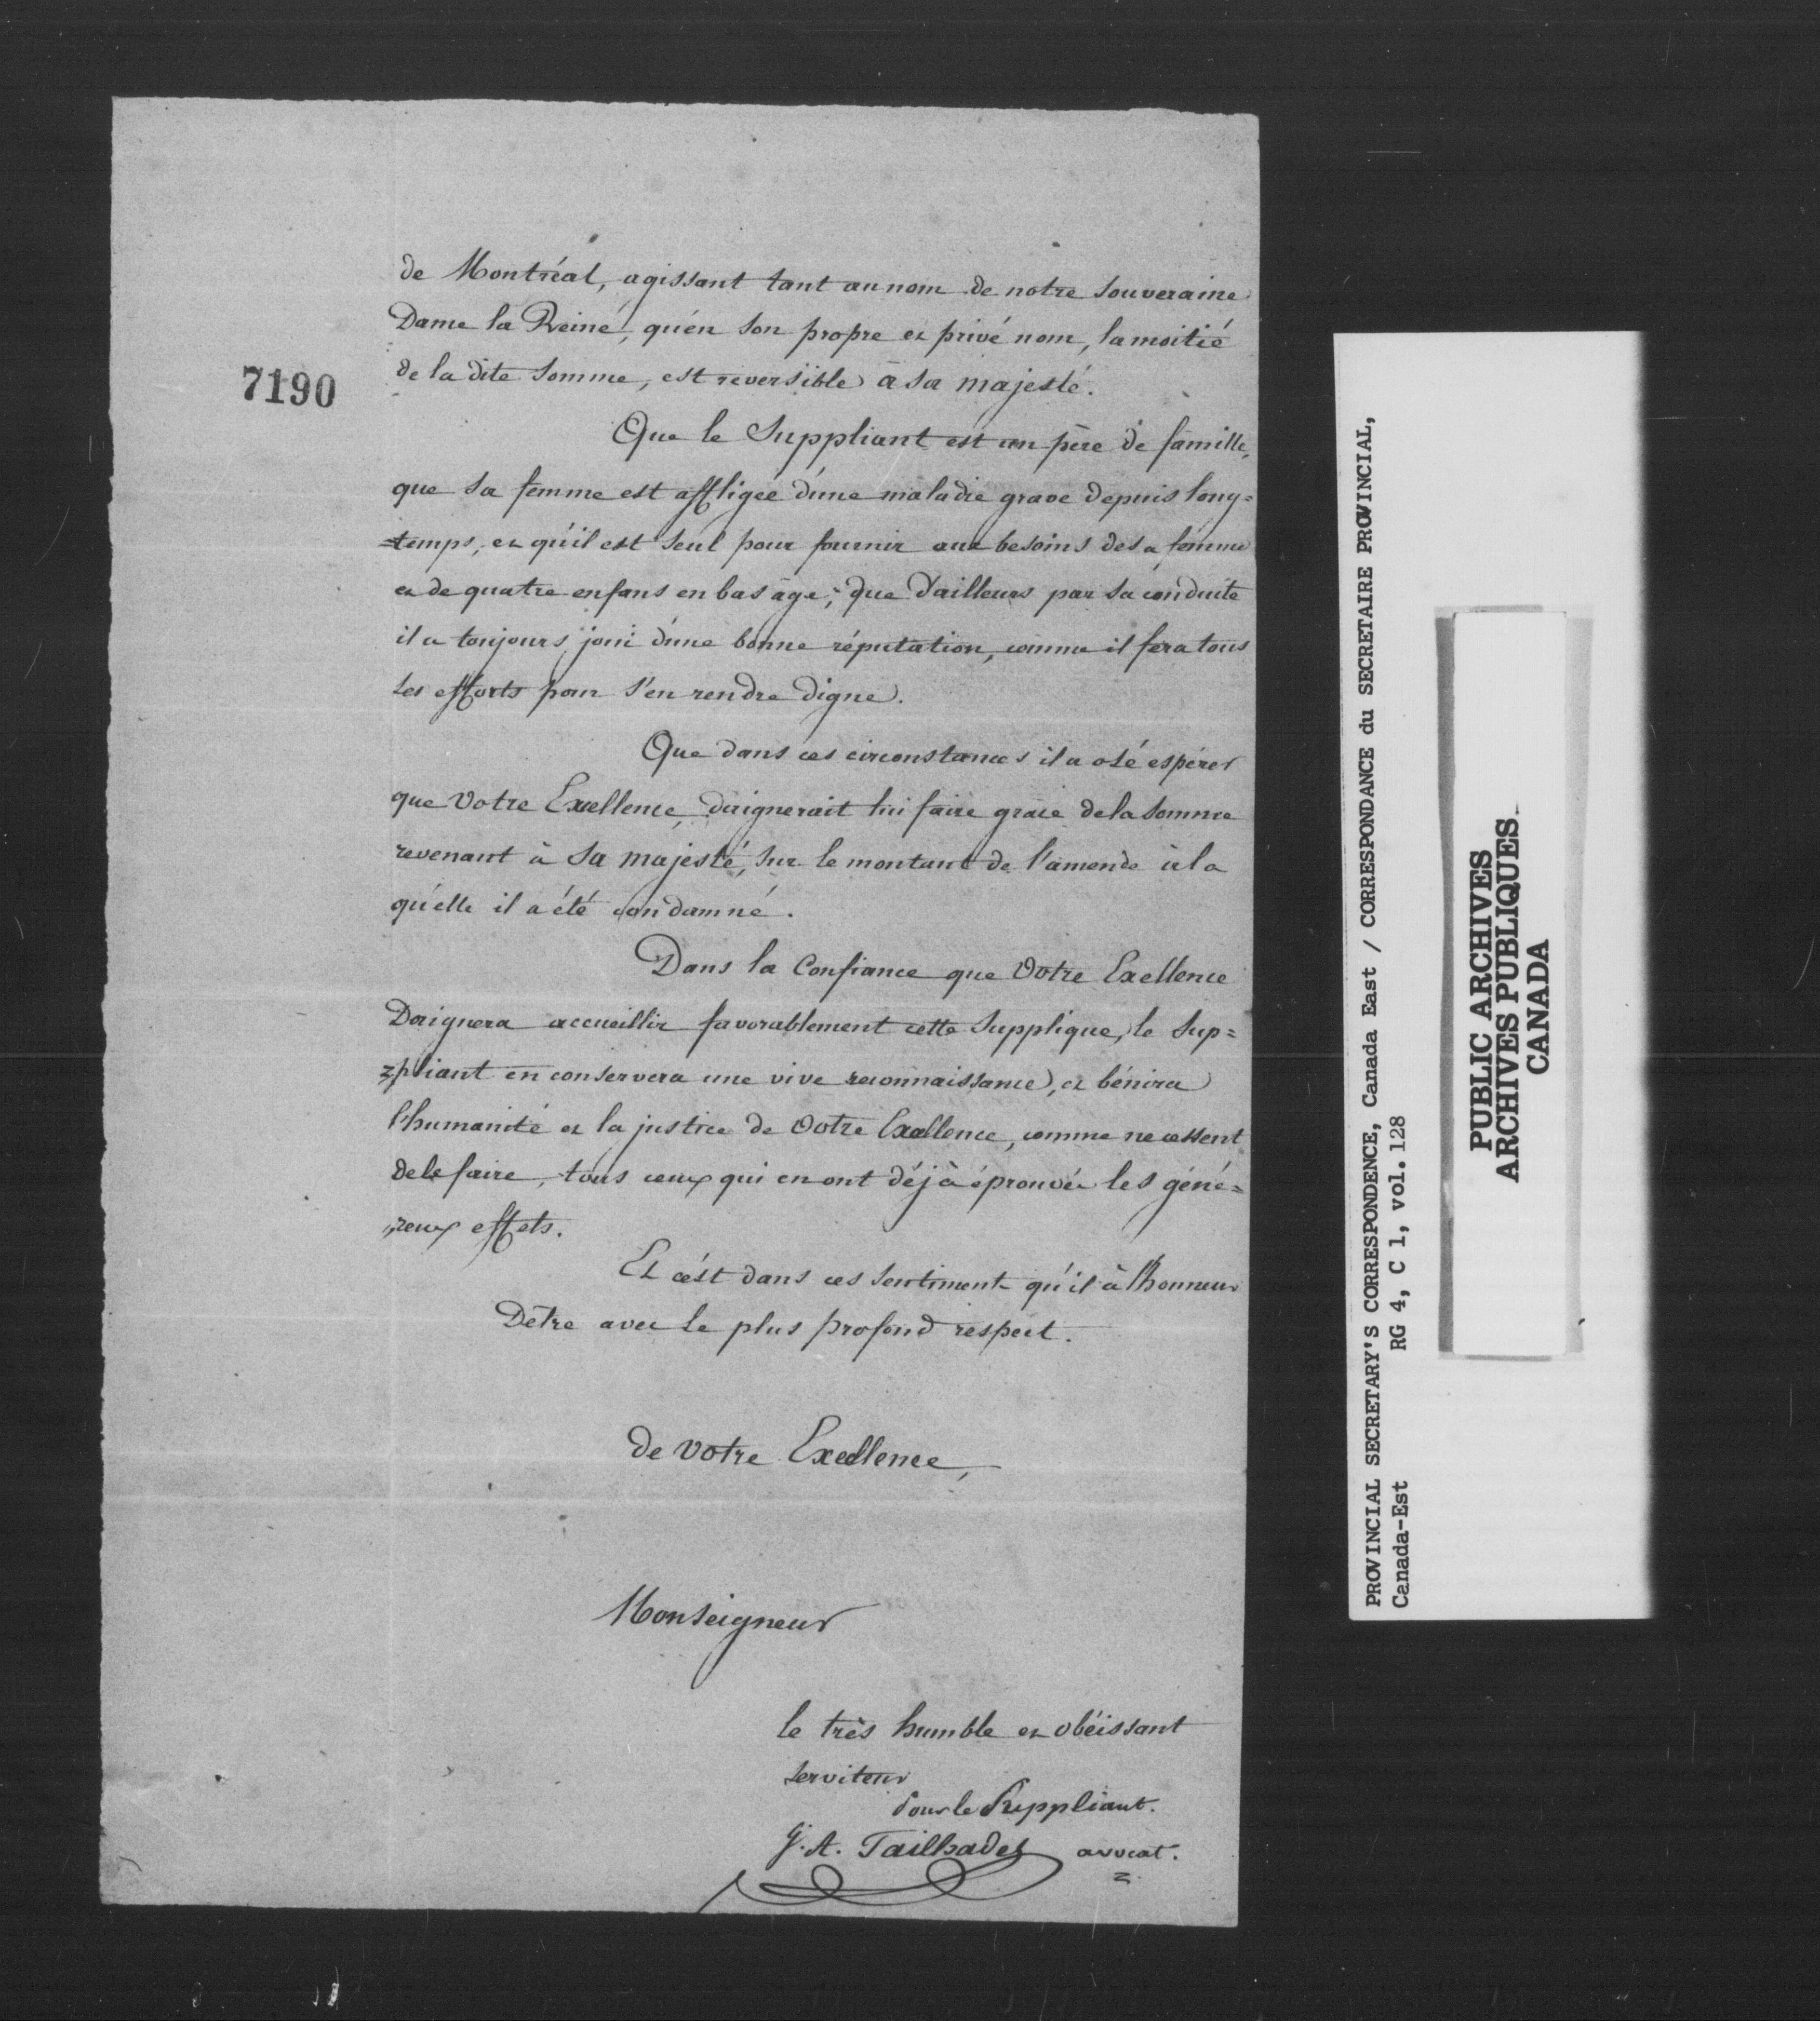 de Montréal, agissant tant au nom de notre souveraine
Dame la Reine, qu'en son propre et privé nom, la moitié
de la dite somme, est reversible à sa majesté.
7190
Que le Suppliant est un père de famille,
que sa femme est affligée d'une maladie grave depuis long=
=temps, et qu'il est seul pour fournir aux besoins de sa femme
et de quatre enfans en bas âge; que d'ailleurs par sa conduite
il a toujours joui d'une bonne réputation, comme il fera tous
ses efforts pour s'en rendre digne.
Que dans ces circonstances il a osé espérer
que Votre Exellence, daignerait lui faire grace de la somme
revenant à sa majesté, sur le montant de l'amende à la
qu'elle il a été condamné.
Dans la Confiance que Votre Exellence
Daignera accueillir favorablement cette Supplique, le Sup=
=pliant en conservera une vive reconnaissance, et bénira
l'humanité et la justice de Votre Exellence, comme ne cessent
de le faire, tous ceux qui en ont déjà éprouvée les géné=
"reux effets.
Et c'est dans ces sentiment qu'il à l'honneur
D'être avec le plus profond respect.
de Votre Exellence,
Monseigneur
le très humble et obéissant
serviteur
Pour le Suppliant.
G. A. Tailhades avocat.
PROVINCIAL SECRETARY'S CORRESPONDENCE, Canada East / CORRESPONDANCE du SECRETAIRE PROVINCIAL,
Canada-Est RG 4, C 1, vol. 128
PUBLIC ARCHIVES
ARCHIVES PUBLIQUES
CANADA